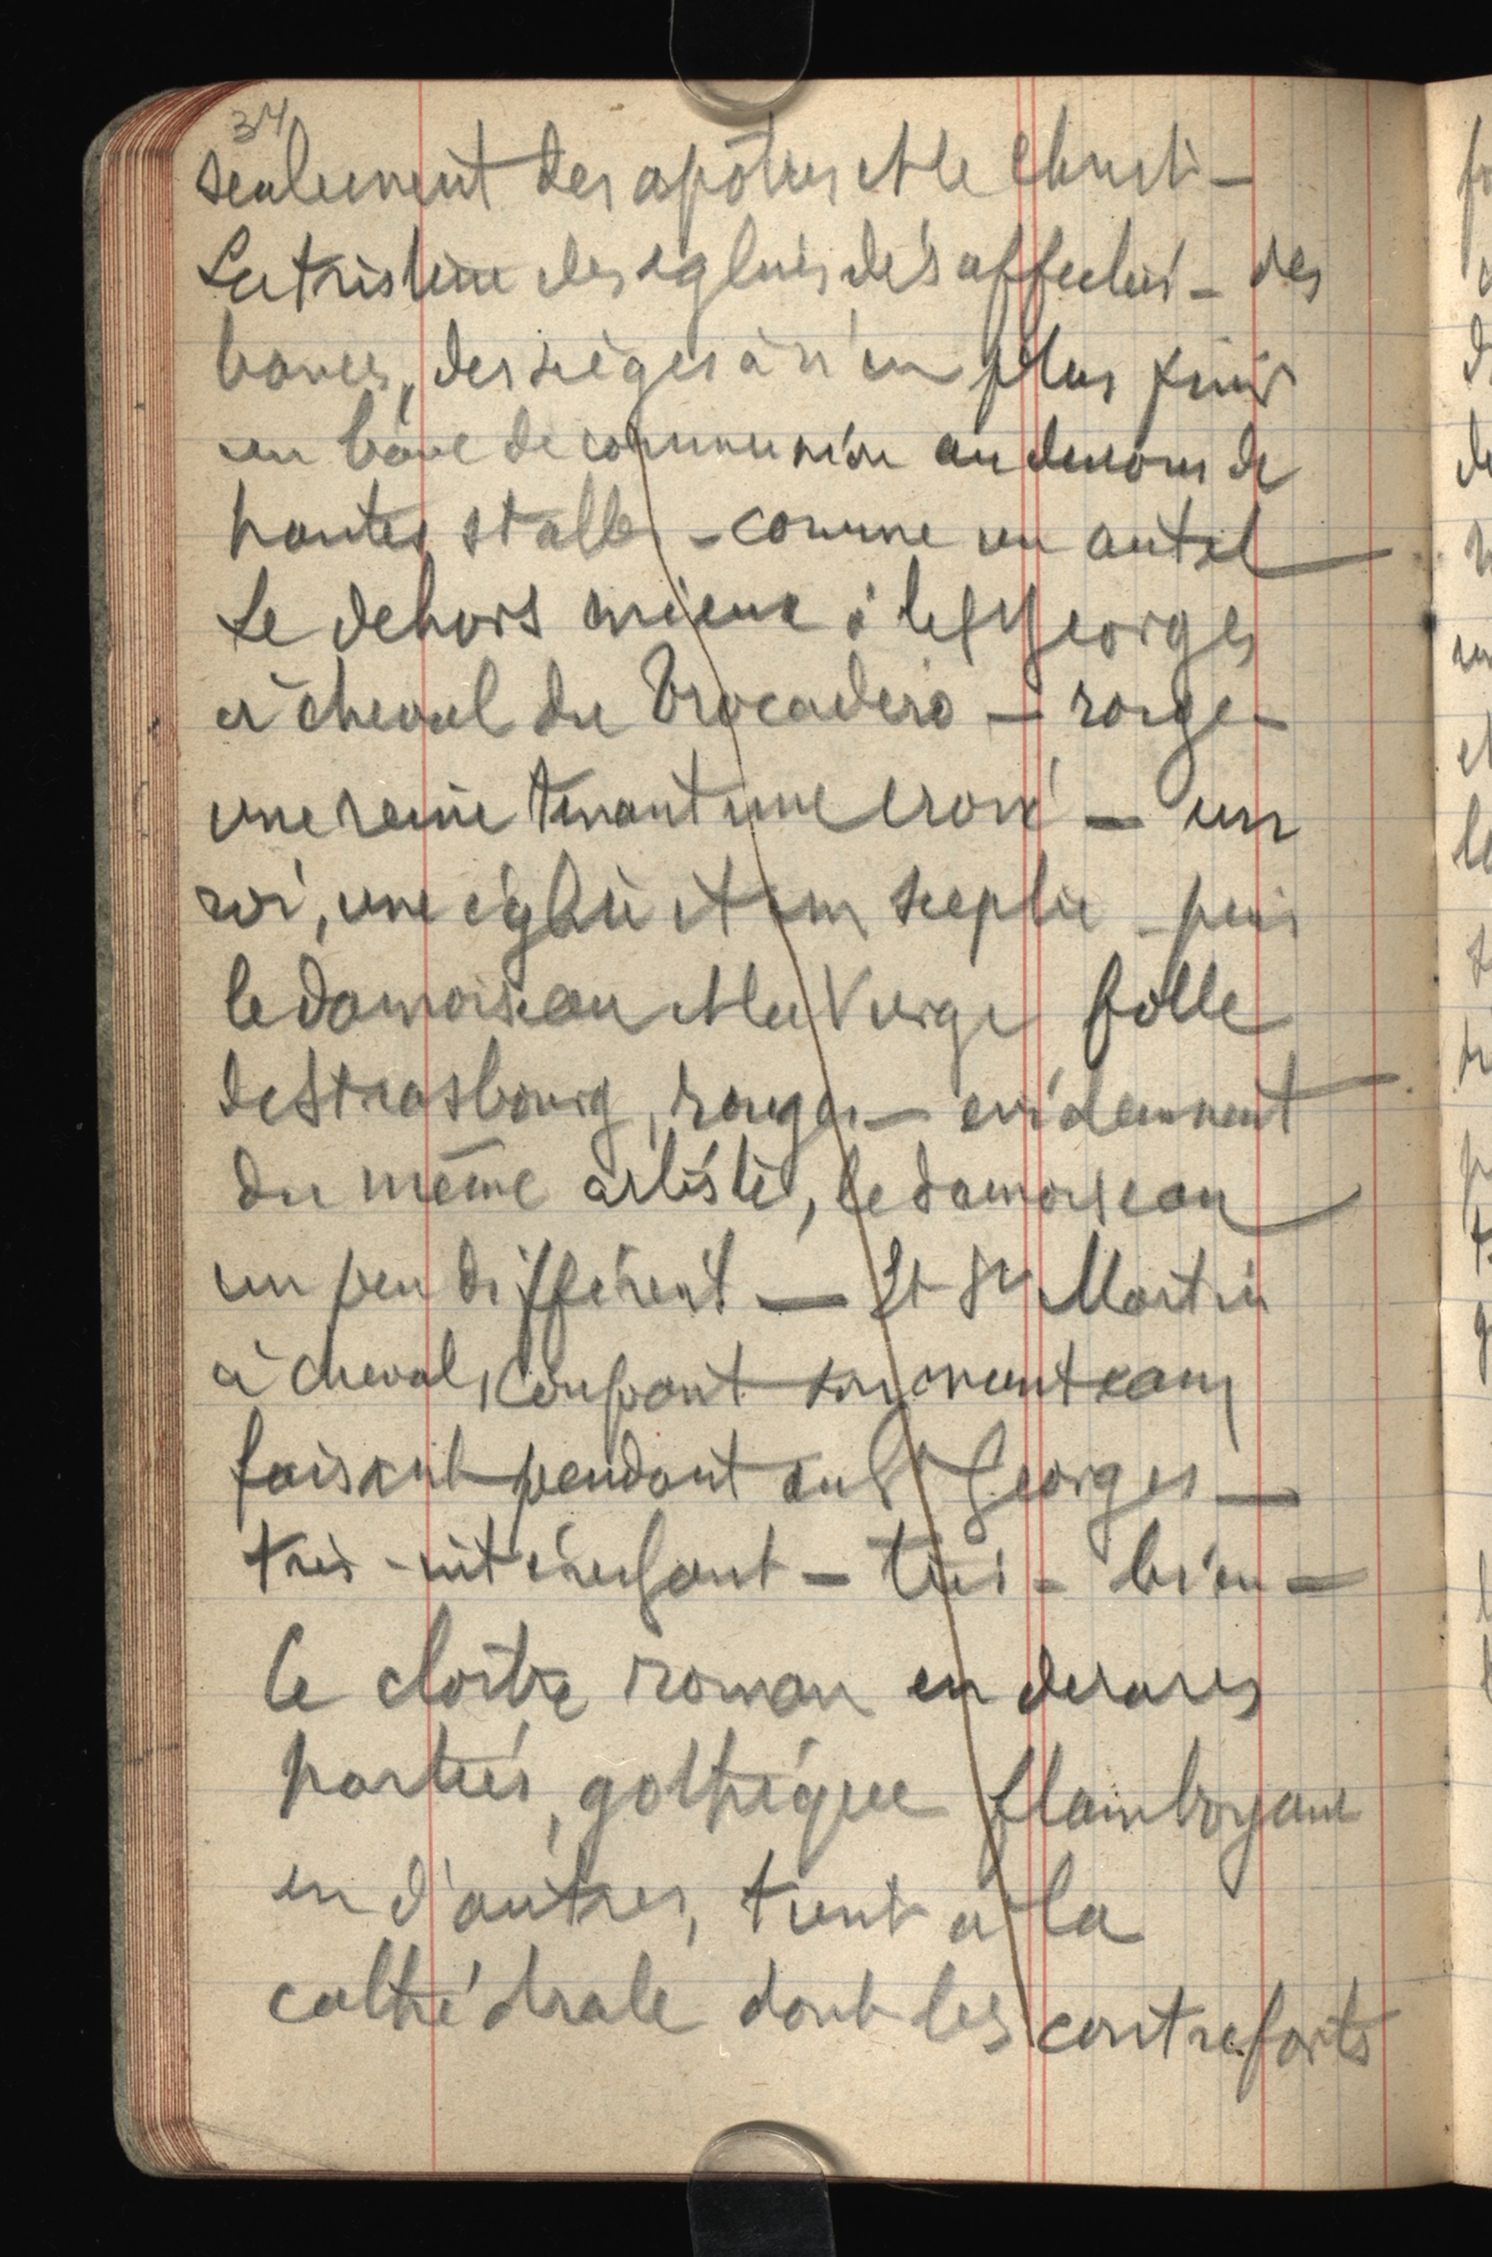 34
seulement des apôtres et le Christ -
La tristesse des églises désaffectées - des
bancs, des sièges à n'en plus finir
un banc de communion au dessous de
hautes stalles - comme un autel
Le dehors mieux : le St Georges
à cheval du Trocadero - rouge -
une reine tenant une croix - un
roi, une église et un sceptre - puis
le damoiseau et la Vierge folle
de Strasbourg, rouges - evidemment
du même artiste, le damoiseau
un peu différent - Et St Martin
à cheval, coupant son manteau,
faisant pendant au St Georges -
très - intéressant - très - bien -
Le cloître roman en de rares
parties, gothique flamboyant
en d'autres, tient à la
cathédrale dont les contreforts